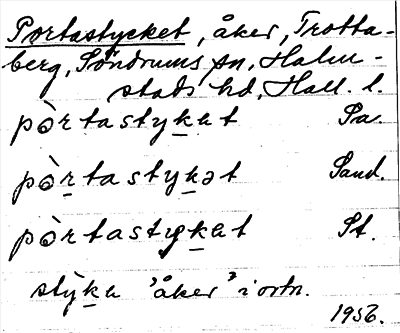 Portastycket, åker, Trotta-
berg, Söndrums sn, Halm-
stads hd, Hall. l.
pòrtastykat Pa.
pòrtastykət Sand.
pòrtastykat St.
styka 'åker' i ortn.
1956.